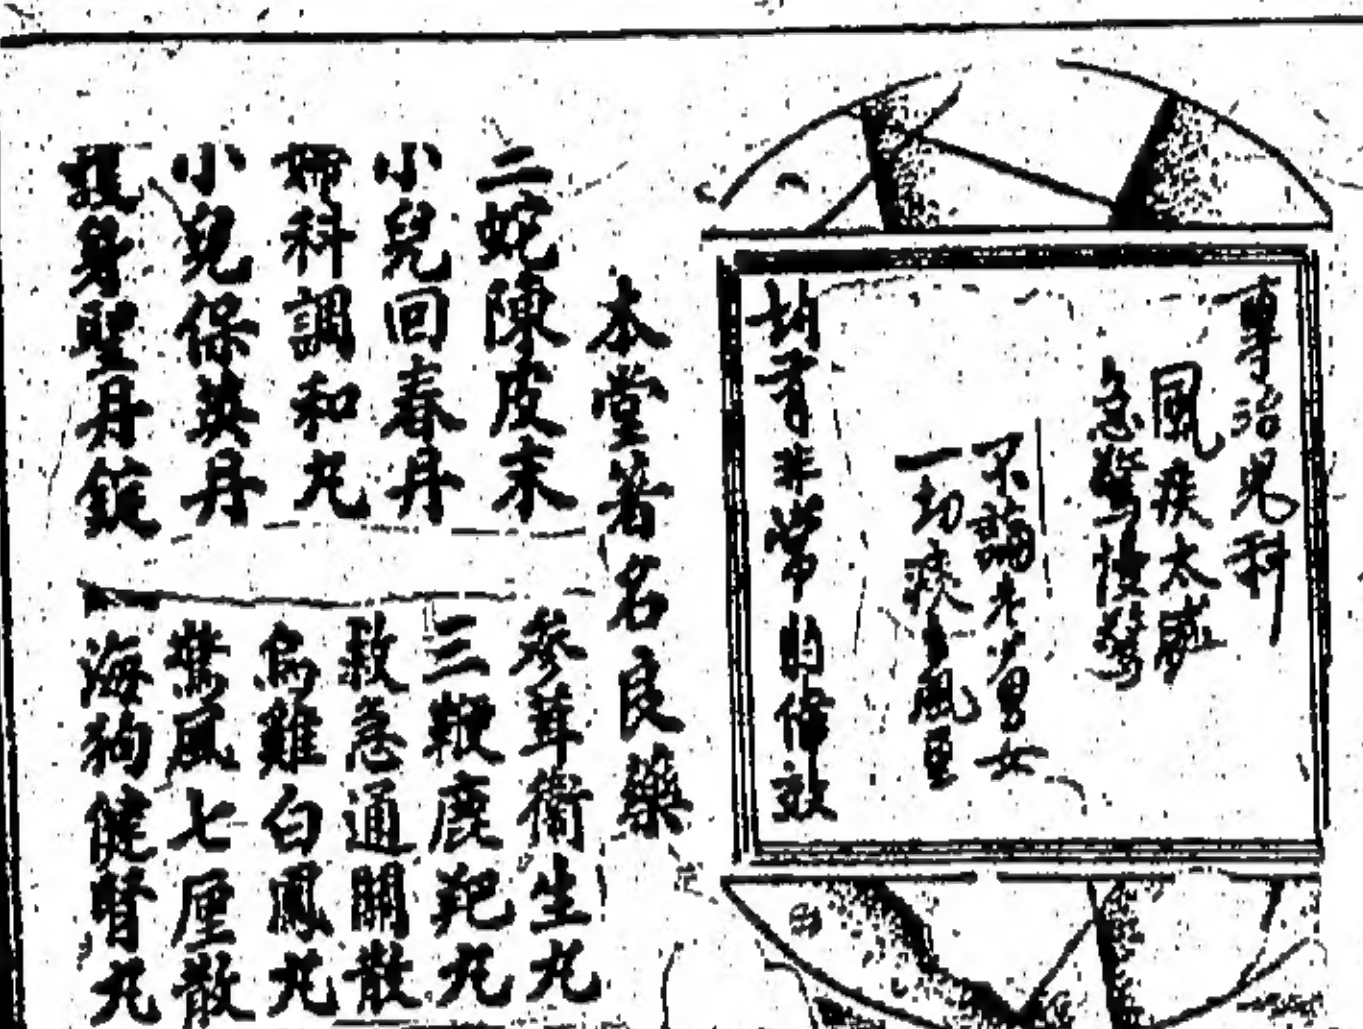 專治兒科
風疾太盛
急驚慢驚
不論老少男女
一切痰風重
均有非常的偉效
本堂著名良藥
二蛇陳皮末
小兒回春丹
婦科調和丸
小兒保英丹
護身聖丹錠
參茸衛生丸
三鞭鹿羓丸
救急通關散
烏雞白鳳丸
驚風七厘散
海狗健腎丸